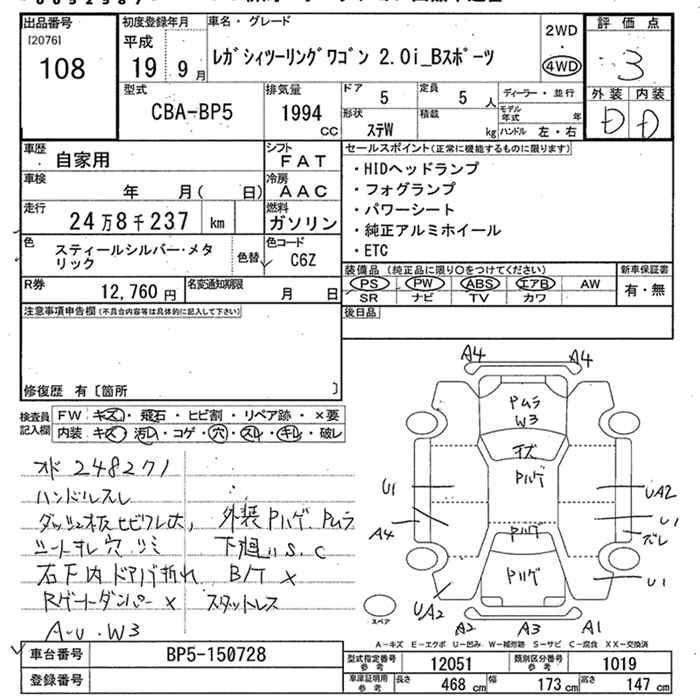 出品番号
[2076]
108
初度登録年月
平成
19 9月
車名・グレード
レガシィツーリングワゴン 2.0i_Bスポーツ
2WD
・
4WD
評価点
3
外装 内装
D D
型式
CBA-BP5
排気量
1994
CC
ドア
5
定員
5 人
形状
ステW
積載
kg
ディーラー・並行
モデル年式 年
ハンドル 左・右
車歴
自家用
シフト
FAT
車検
年 月( 日)
冷房
AAC
走行
24万8千237 km
燃料
ガソリン
色
スティールシルバー・メタリック
色替
色コード
C6Z
R券
12,760円
名変通知期限
月 日
セールスポイント(正常に機能するものに限ります)
・HIDヘッドランプ
・フォグランプ
・パワーシート
・純正アルミホイール
・ETC
装備品 (純正品に限り○をつけてください)
PS PW ABS エアB AW
SR ナビ TV カワ
新車保証書
有・無
後日品
注意事項申告欄(不具合内容等は具体的に記入して下さい)
修復歴 有〔箇所 〕
検査員
記入欄
FW キズ・飛石・ヒビ割・リペア跡・×要
内装 キズ・汚レ・コゲ・穴・スレ・キレ・破レ
メド 248271
ハンドルスレ
ダッシュ板ヒビワレ大,
シートキレ 穴 シミ
右下内ドアバ折れ
Rゲートダンパー ×
A-U・W3
外装 Pハゲ、Pムラ
下廻り S.C
B/T ×
スタットレス
A4 A4
Pムラ
W3
キズ
Pハゲ
U1
UA2
U1
A4
ズレ
Pハゲ
Pハゲ
UA2
U1
A2 A3 A1
スペア
A-キズ E-エクボ U-凹み W-補修跡 S-サビ C-腐食 XX-交換済
車台番号
BP5-150728
登録番号
型式指定番号
参考
12051
類別区分番号
参考
1019
車庫証明用
参考
長さ 468 cm
幅 173 cm
高さ 147 cm